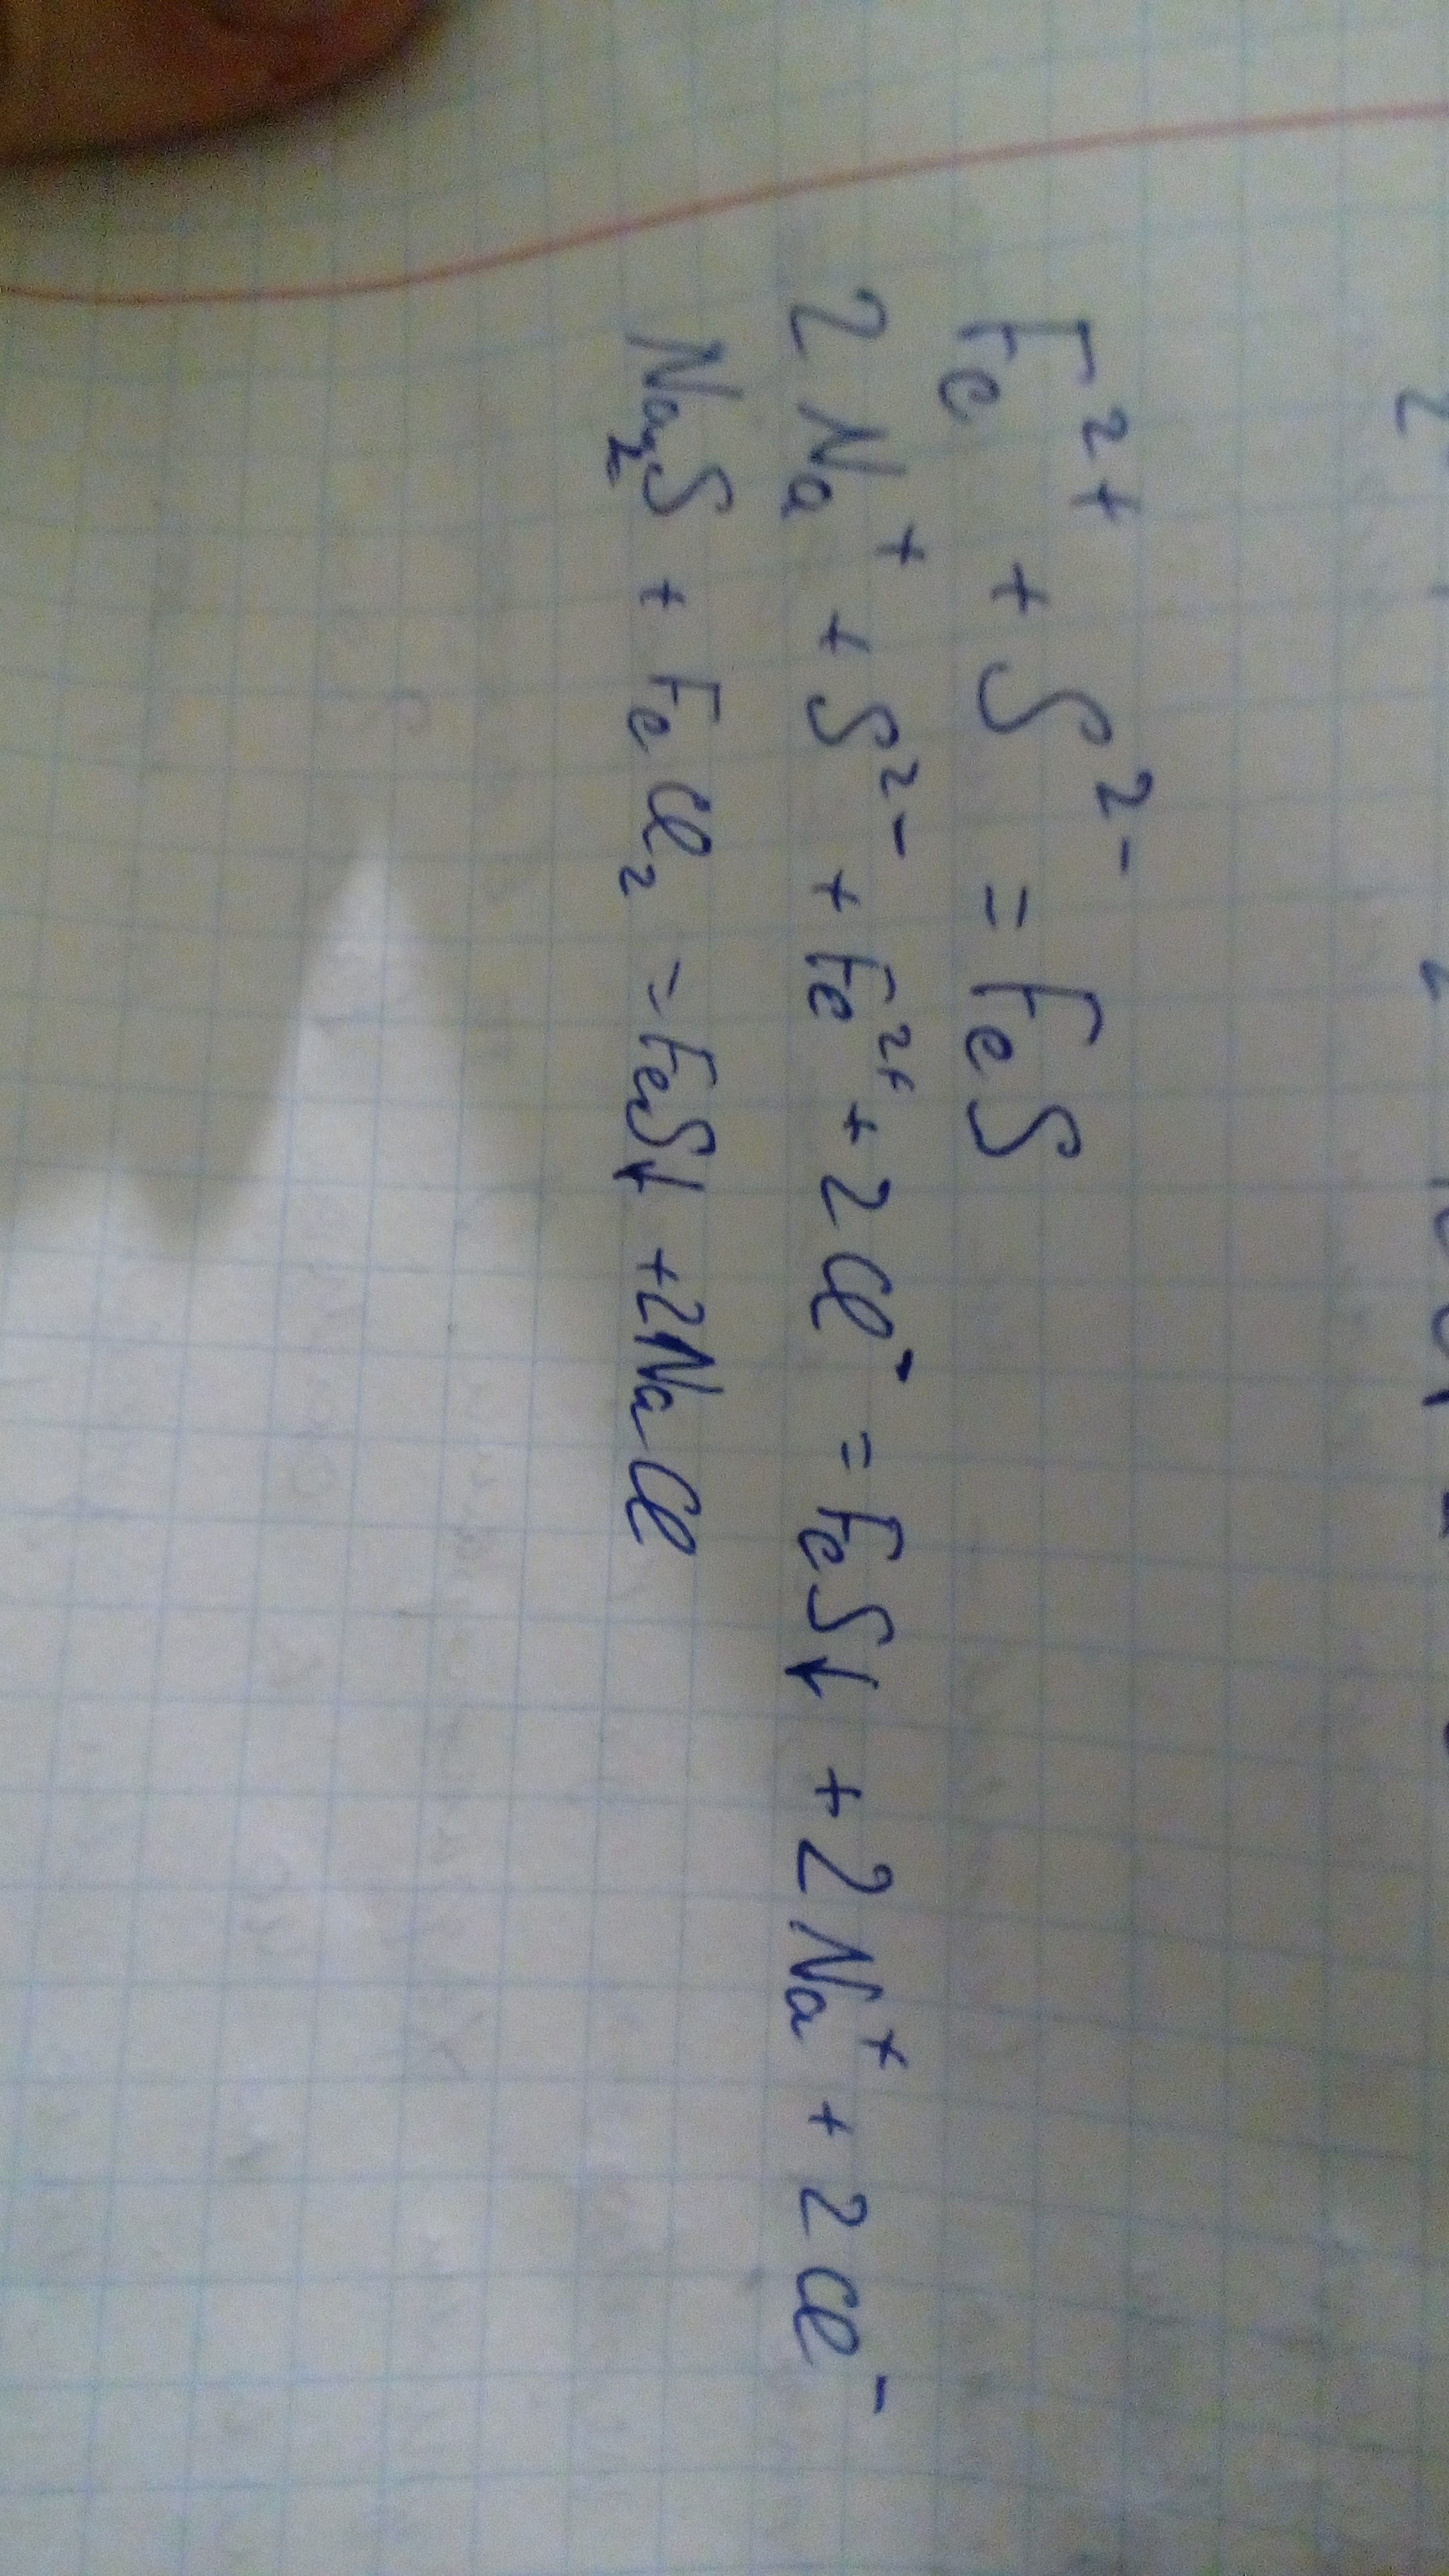 Fe²⁺ + S²⁻ = FeS
2Na⁺ + S²⁻ + Fe²⁺ + 2Cl⁻ = FeS↓ + 2Na⁺ + 2Cl⁻
Na₂S + FeCl₂ = FeS↓ + 2NaCl